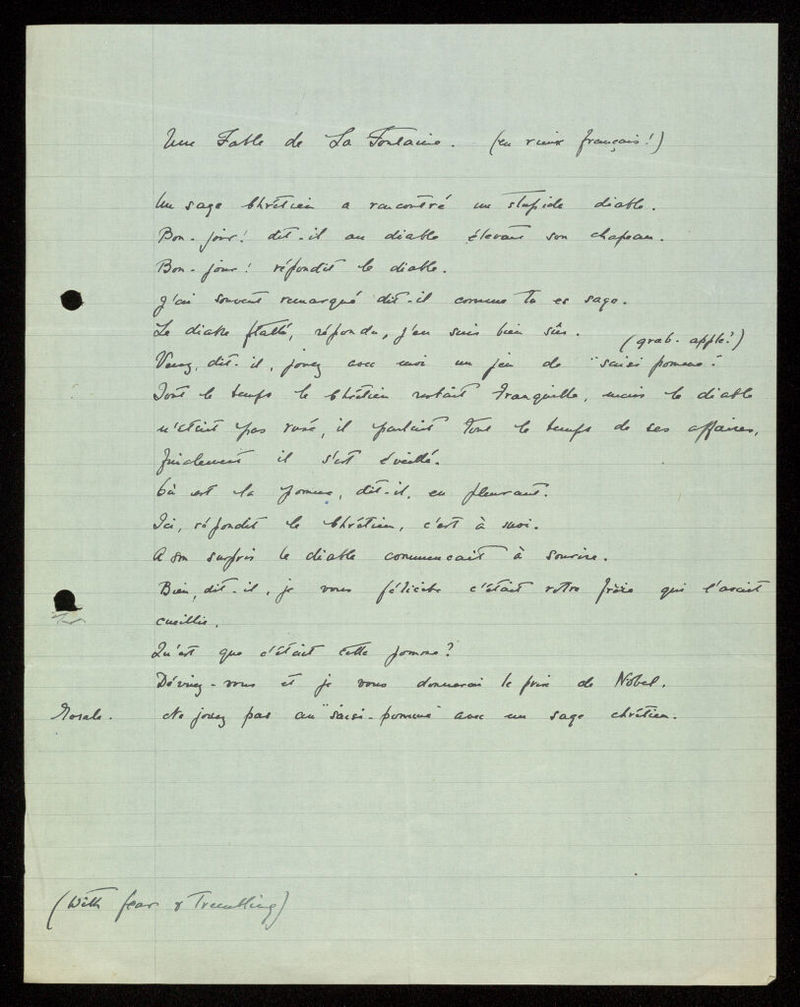 Une Fable de La Fontaine. (en vieux français!)
Un sage Chrétien a rencontré un stupide diable.
Bon-jour! dit-il au diable élevant son chapeau.
Bon-jour! répondit le diable.
J'ai souvent remarqué dit-il comme tu es sage.
Le diable flatté, répondu, j'en suis bien sûr.
(grab-apple?)
Venez, dit-il, jouez avec moi un jeu de "saisi pomme".
Tout le temps le Chrétien restait tranquille, mais le diable
n'était pas rusé, il parlait tout le temps de ses affaires,
finalement il s'est éveillé.
Où est la pomme, dit-il, en pleurant.
Ici, répondit le Chrétien, c'est à moi.
A son surpris le diable commencait à sourire.
Bien, dit-il, je vous félicite c'était votre frère qui l'avait
cueillie.
Qu'est que c'était cette pomme?
Dévinez-vous et je vous donnerai le prix de Nobel.
Morale. Ne jouez pas au "saisi-pomme" avec un sage chrétien.
(With fear & Trembling)